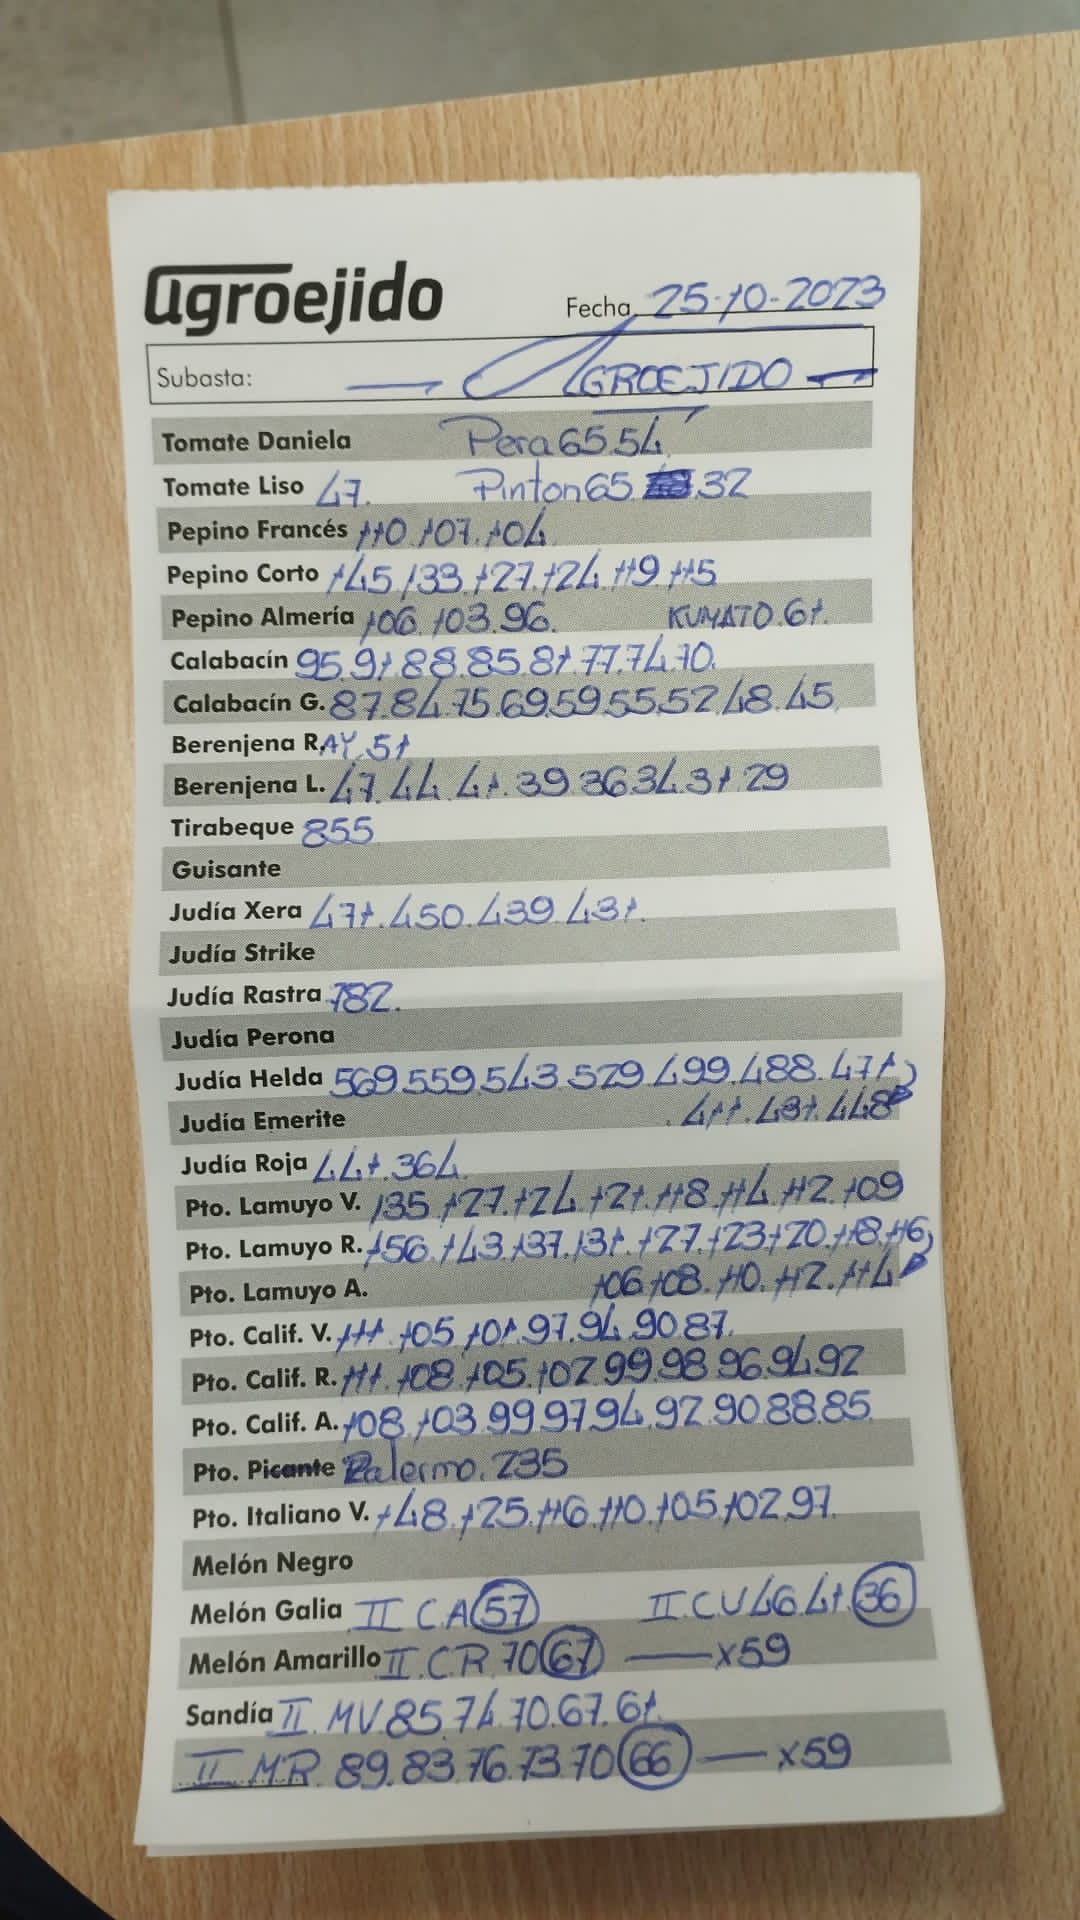 agroejido
Fecha 25-10-2023
Subasta: — AGROEJIDO —
Tomate Daniela Pera 65.54
Tomate Liso 47. Pinton 65. .32
Pepino Francés 110.107.104
Pepino Corto 145.133.127.124.119.115
Pepino Almería 106.103.96. KUMATO.61.
Calabacín 95.91.88.85.81.77.74.70.
Calabacín G. 87.84.75.69.59.55.52.48.45
Berenjena R. AY.51
Berenjena L. 47.44.41.39.36.34.31.29
Tirabeque 855
Guisante
Judía Xera 471.450.439.431.
Judía Strike
Judía Rastra 782.
Judía Perona
Judía Helda 569.559.543.529.499.488.471
Judía Emerite .411.431.448
Judía Roja 441.364.
Pto. Lamuyo V. 135.127.124.121.118.114.112.109
Pto. Lamuyo R. 156.143.137.131.127.123.120.118.116
Pto. Lamuyo A. 106.108.110.112.114
Pto. Calif. V. 111.105.101.97.94.90.87.
Pto. Calif. R. 111.108.105.102.99.98.96.94.92
Pto. Calif. A. 108.103.99.97.94.92.90.88.85
Pto. Picante Palermo.235
Pto. Italiano V. 148.125.116.110.105.102.97.
Melón Negro
Melón Galia II C.A 57 II.C.V 46.41.36
Melón Amarillo II.C.R.70 67 — x59
Sandía II.MV.85.74.70.67.61.
II MR. 89.83.76.73.70 66 — x59